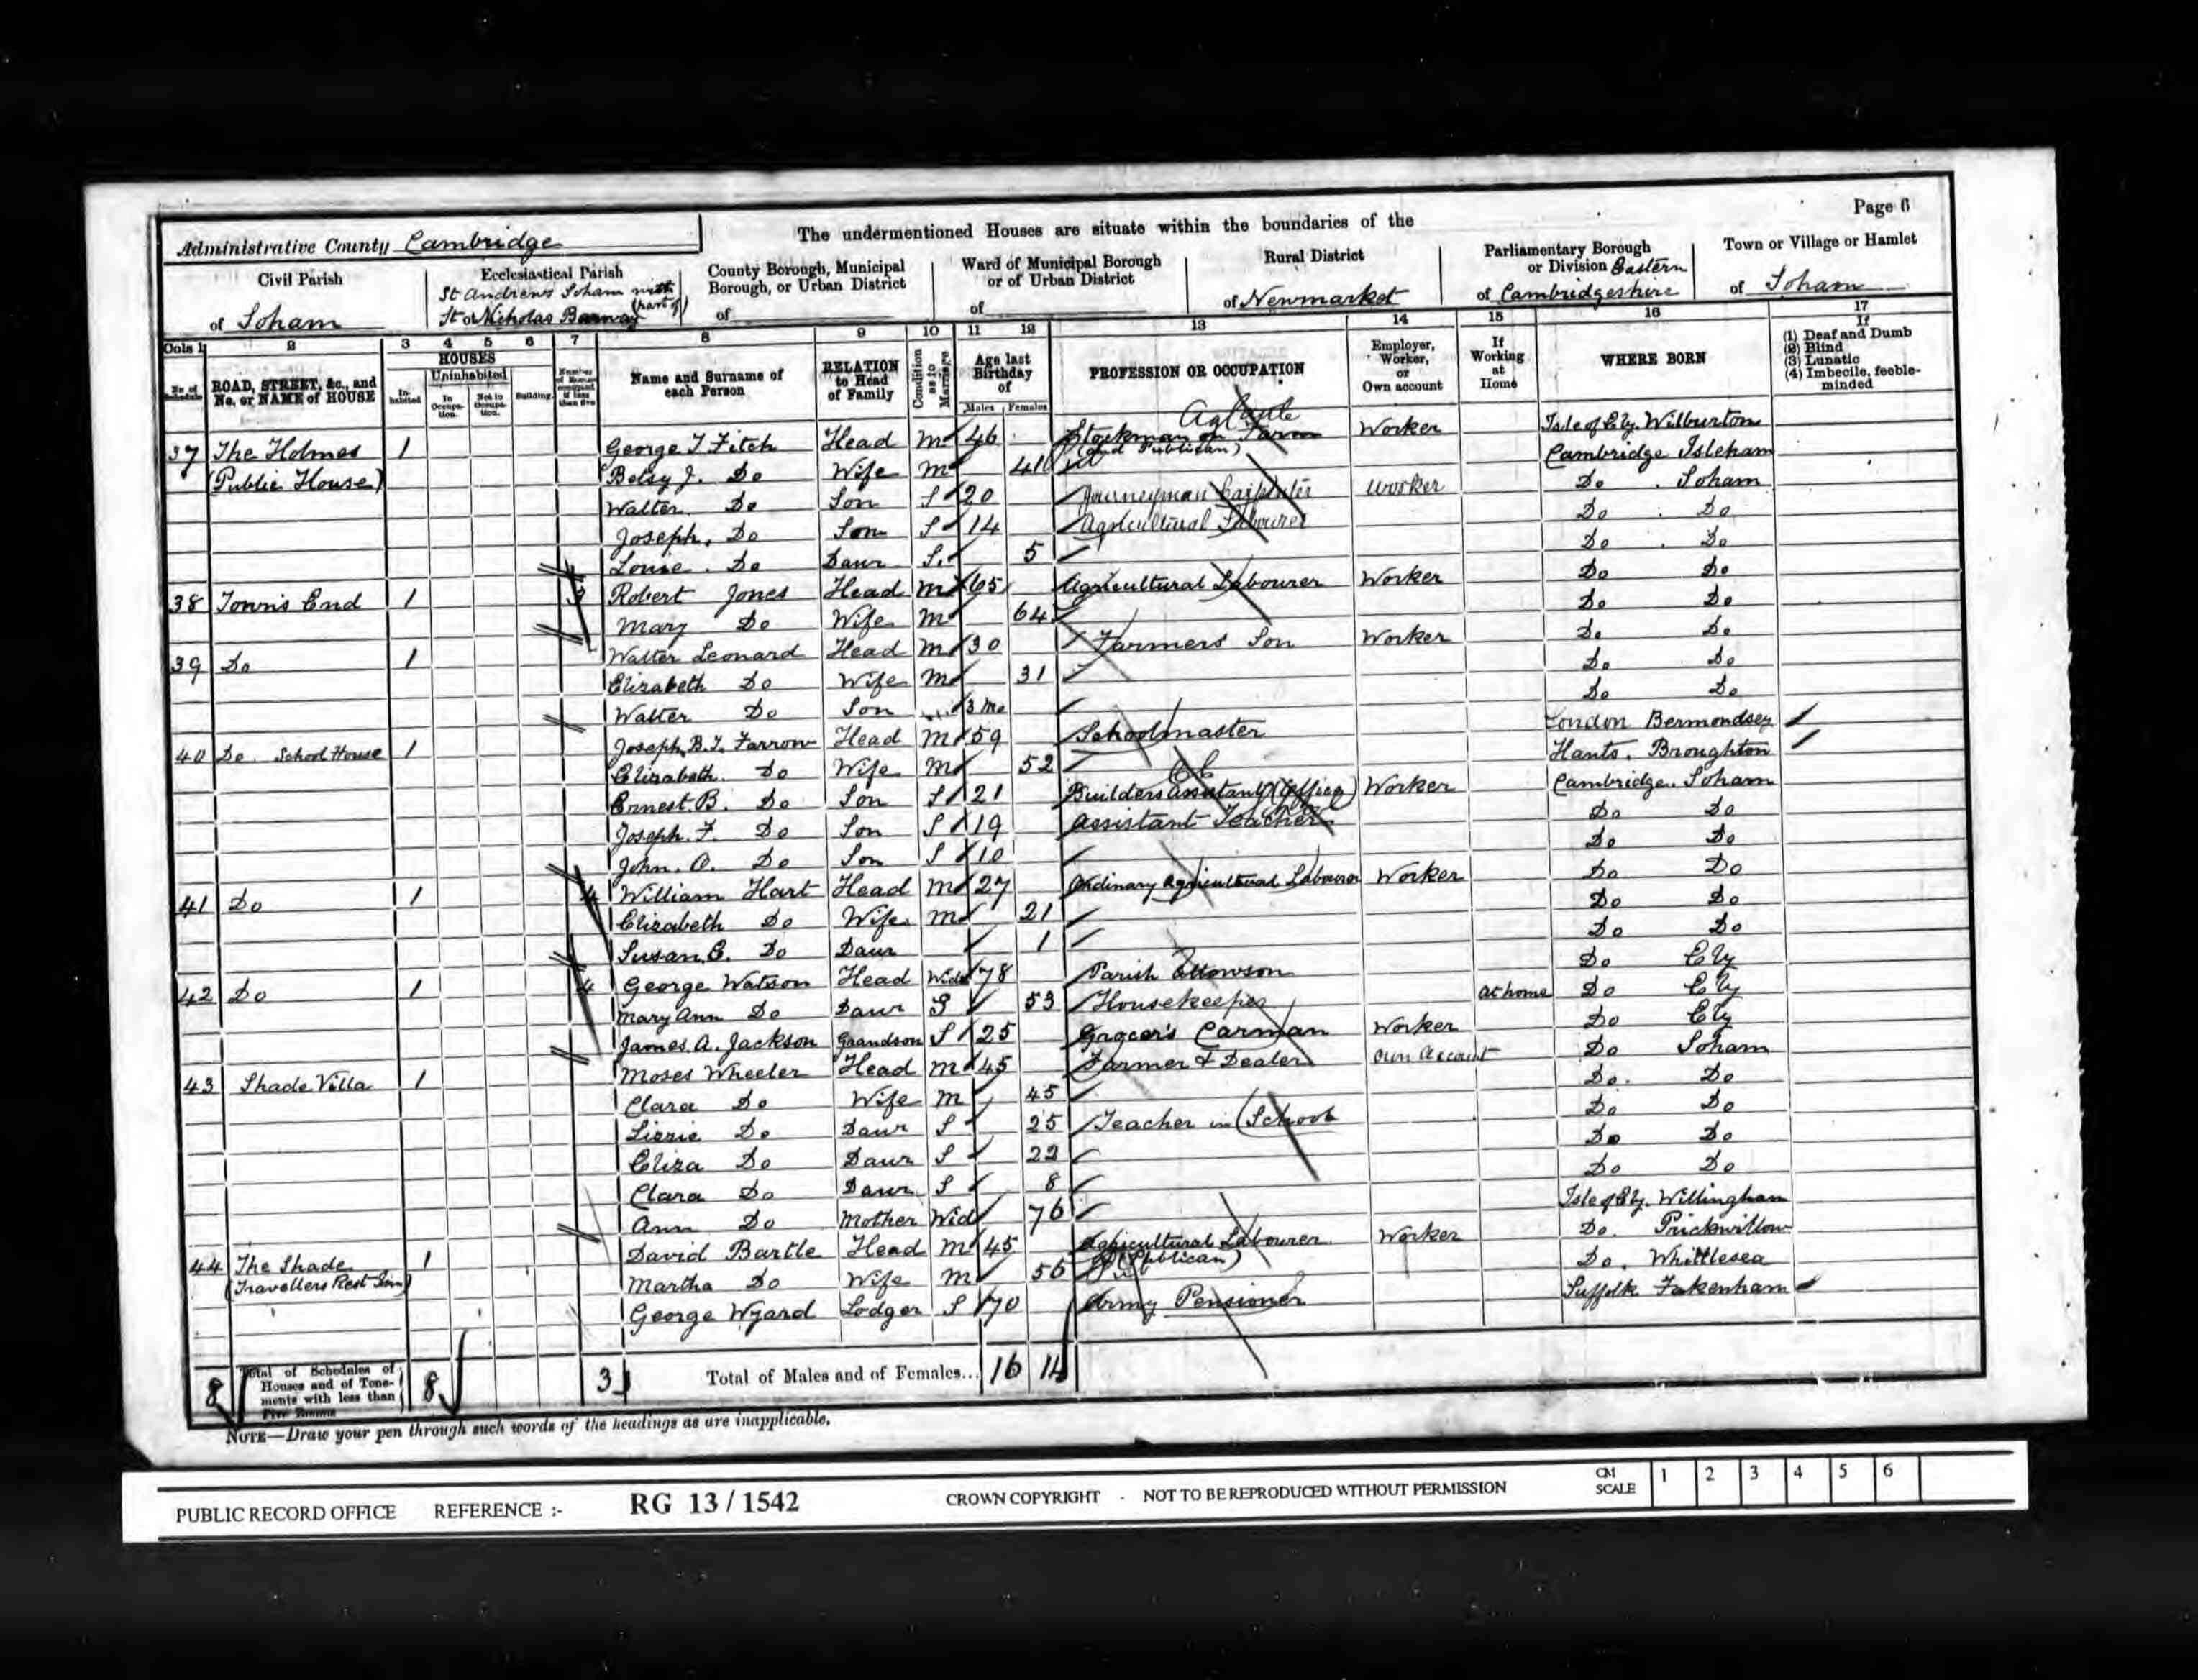 Page 6
The undermentioned Houses are situate within the boundaries of the
Administrative County Cambridge
Civil Parish
of Soham
Ecclesiastical Parish
St Andrews Soham with
(part of)
St Nicholas Barway
County Borough, Municipal
Borough, or Urban District
of
Ward of Municipal Borough
or of Urban District
of
Rural District
of Newmarket
Parliamentary Borough
or Division Eastern
of Cambridgeshire
Town or Village or Hamlet
of Soham
Cols 1 2 3 4 5 6 7 8 9 10 11 12 13 14 15 16 17
No. of Schedule
ROAD, STREET, &c., and
No. or NAME of HOUSE
HOUSES
In-habited
Uninhabited
In Occupa-tion.
Not in Occupa-tion.
Building
Number of Rooms occupied if less than five
Name and Surname of
each Person
RELATION
to Head
of Family
Condition as to Marriage
Age last
Birthday
of
Males Females
PROFESSION OR OCCUPATION
Employer,
Worker,
or
Own account
If
Working
at
Home
WHERE BORN
If
(1) Deaf and Dumb
(2) Blind
(3) Lunatic
(4) Imbecile, feeble-
minded
37 The Holmes 1 George T Fitch Head M 46 Stockman on Farm Worker Isle of Ely Wilburton
(Public House) (and Publican)
Betsy J. Do Wife M 41 Cambridge Isleham
Walter Do Son S 20 Journeyman Carpenter Worker Do Soham
Joseph. Do Son S 14 Agricultural Labourer Do Do
Louise. Do Daur S. 5 Do Do
38 Town's End 1 3 Robert Jones Head M 65 Agricultural Labourer Worker Do Do
Mary Do Wife M 64 Do Do
39 Do 1 Walter Leonard Head M 30 Farmers Son Worker Do Do
Elizabeth Do Wife M 31 Do Do
Walter Do Son 3 Mo Do Do
40 Do. School House 1 Joseph B.T. Farrow Head M 59 Schoolmaster London Bermondsey
Elizabeth. Do Wife M 52 Hants. Broughton
Ernest B. Do Son S 21 Builders assistant (Office) Worker Cambridge. Soham
Joseph. F. Do Son S 19 Assistant Teacher Do Do
John. A. Do Son S 10 Do Do
41 Do 1 4 William Hart Head M 27 Ordinary Agricultural Labourer Worker Do Do
Elizabeth Do Wife M 21 Do Do
Susan. E. Do Daur 1 Do Do
42 Do 1 4 George Watson Head Wid 78 Parish Do Ely
Mary Ann Do Daur S 53 Housekeeper at home Do Ely
James. A. Jackson Grandson S 25 Grocer's Carman Worker Do Ely
43 Shade Villa 1 Moses Wheeler Head M 45 Farmer & Dealer own account Do Soham
Clara Do Wife M 45 Do. Do
Lizzie Do Daur S 25 Teacher in School Do Do
Eliza Do Daur S 22 Do Do
Clara Do Daur S 8 Do Do
Ann Do Mother Wid 76 Isle of Ely. Willingham
44 The Shade 1 David Bartle Head M 45 Agricultural Labourer Worker Do. Prickwillow
(Travellers Rest Inn) (Publican)
Martha Do Wife M 56 Do. Whittlesea
George Wyard Lodger S 70 Army Pensioner Suffolk Fakenham
8 Total of Schedules of
Houses and of Tene-
ments with less than
Five Rooms
8 3 Total of Males and of Females... 16 14
NOTE—Draw your pen through such words of the headings as are inapplicable.
PUBLIC RECORD OFFICE REFERENCE :- RG 13 / 1542 CROWN COPYRIGHT - NOT TO BE REPRODUCED WITHOUT PERMISSION CM SCALE 1 2 3 4 5 6